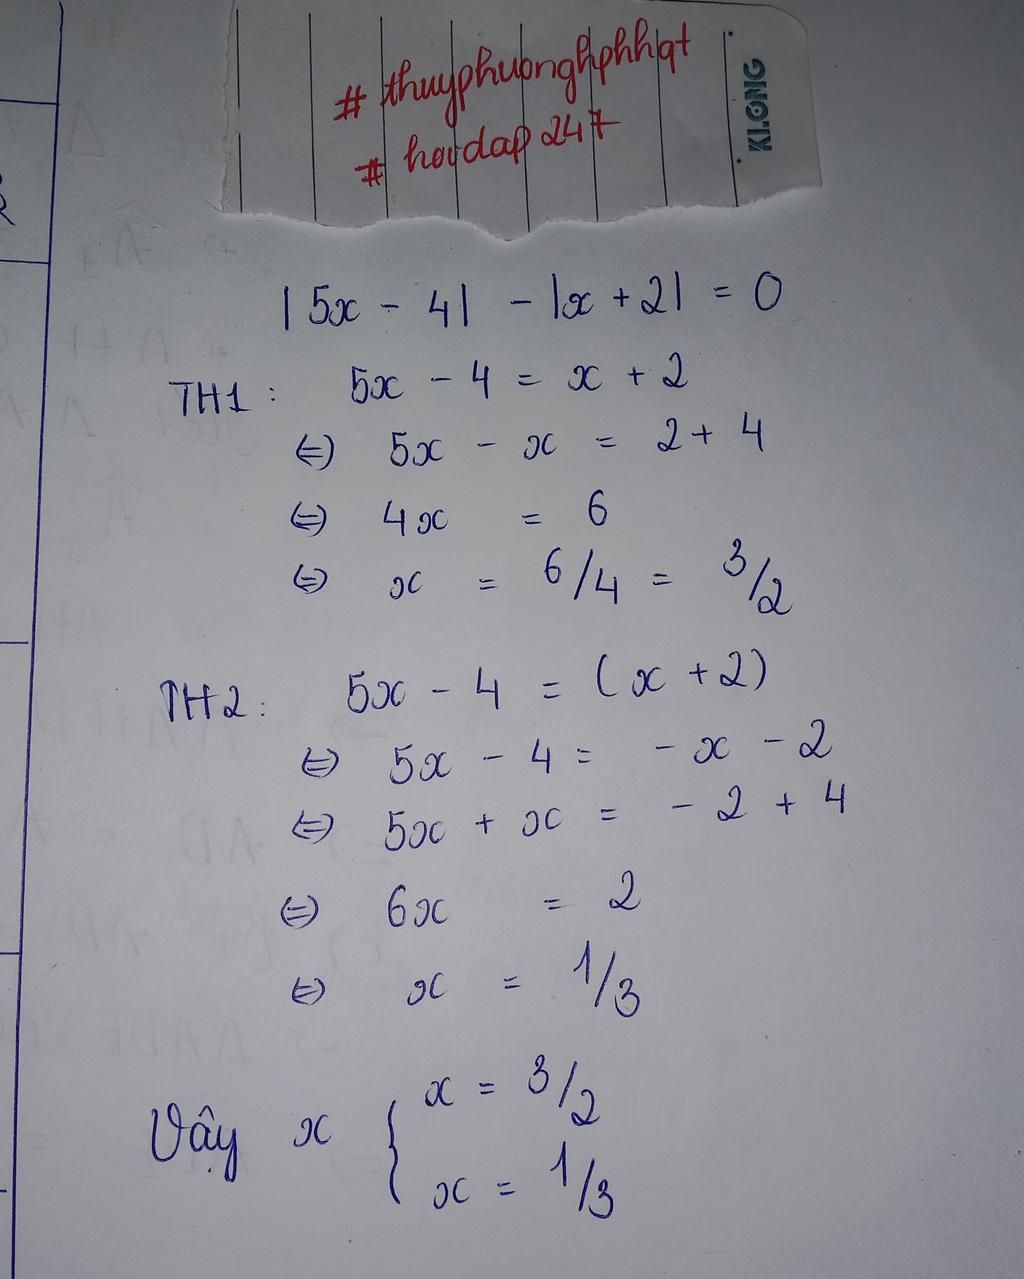 # thuyphuonghphhgt
# hoidap 247
KLONG
| 5x - 4 | - | x + 2 | = 0
TH1 : 5x - 4 = x + 2
⇔ 5x - x = 2 + 4
⇔ 4x = 6
⇔ x = 6/4 = 3/2
TH2 : 5x - 4 = ( x + 2 )
⇔ 5x - 4 = - x - 2
⇔ 5x + x = - 2 + 4
⇔ 6x = 2
⇔ x = 1/3
Vậy x { x = 3/2
x = 1/3